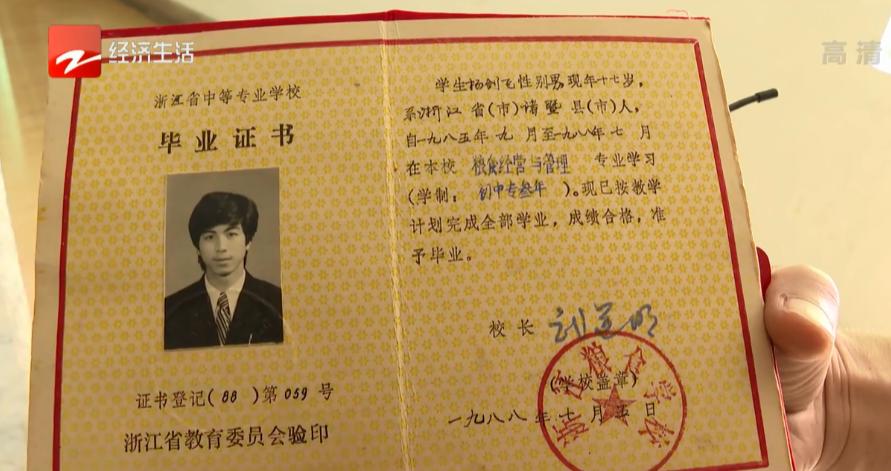 经济生活
高清
浙江省中等专业学校
毕业证书
证书登记(88)第059号
浙江省教育委员会验印
学生杨剑飞性别男现年十七岁,
系浙江省(市)诸暨县(市)人,
自一九八五年九月至一九八八年七月
在本校 粮食经营与管理 专业学习
(学制: 初中专叁年 )。现已按教学
计划完成全部学业,成绩合格,准
予毕业。
校长
(学校盖章)
一九八八年七月 日
浙江粮食学校